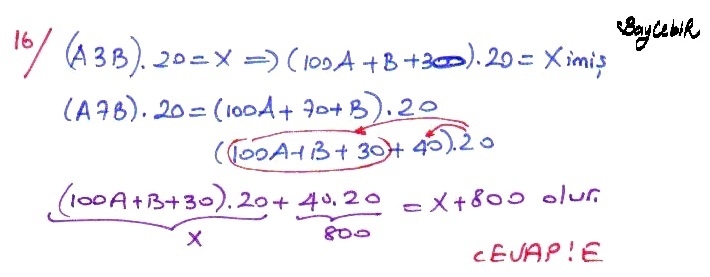 BayCebiR
16/ (A3B).20=X => (100A+B+300).20=X imiş
(A7B).20=(100A+70+B).20
(100A+B+30)+40).20
(100A+B+30).20+40.20 = X+800 olur.
X 800
CEVAP!E